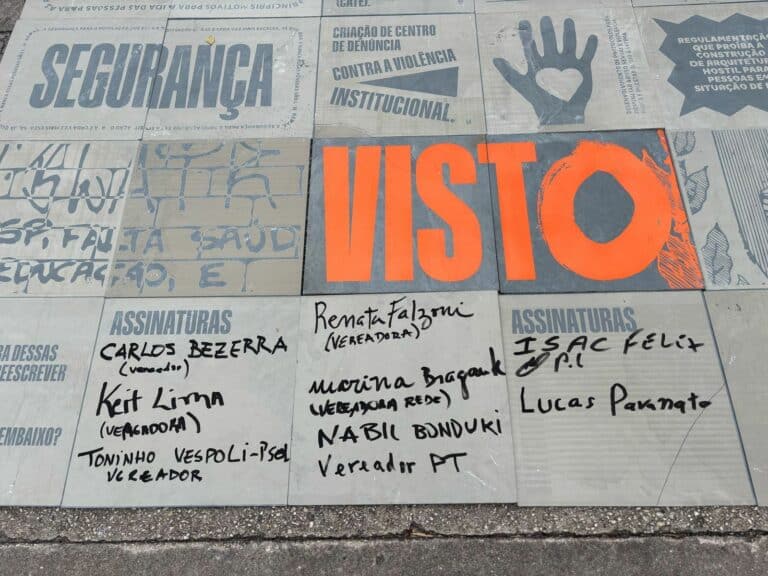 (CATE).
SEGURANÇA
CRIAÇÃO DE CENTRO
DE DENÚNCIA
CONTRA A VIOLÊNCIA
INSTITUCIONAL.
REGULAMENTAÇÃO
QUE PROÍBA A
CONSTRUÇÃO
DE ARQUITETURA
HOSTIL PARA
PESSOAS EM
SITUAÇÃO DE
SP, FALTA SAÚD
EDUCAÇÃO, E
VISTO
DESSAS
REESCREVER
EMBAIXO?
ASSINATURAS
CARLOS BEZERRA
(vereador)
Keit Lima
(VEREADORA)
TONINHO VESPOLI-PSOL
VEREADOR
Renata Falzoni
(VEREADORA)
Marina Bragante
(VEREADORA REDE)
NABIL BONDUKI
Vereador PT
ASSINATURAS
ISAC FELIX
PL
LUCAS Pavanato